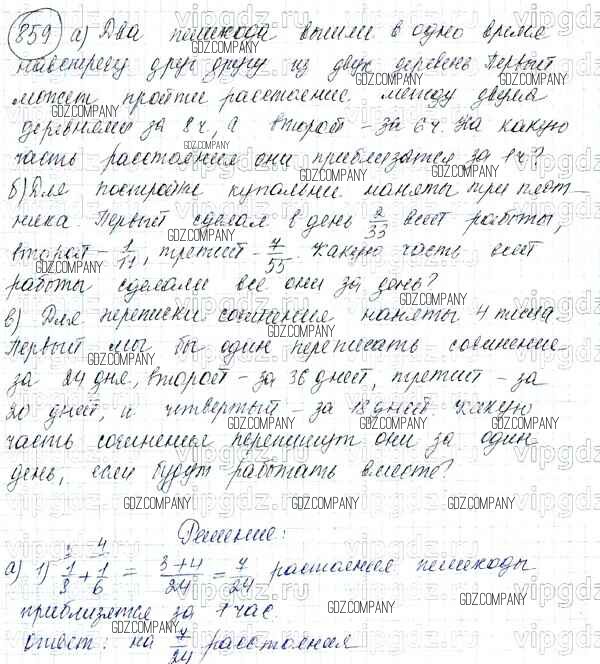 859 а) Два пешехода вышли в одно время
навстречу друг другу из двух деревень. Первый
может пройти расстояние между двумя
деревнями за 8 ч, а второй – за 6 ч. На какую
часть расстояния они приблизятся за 1 ч?
б) Для постройки купальни наняты три плот-
ника. Первый сделал в день 2/33 всей работы,
второй – 1/11, третий – 7/55. Какую часть всей
работы сделали все они за день?
в) Для переписки сочинения наняты 4 писца.
Первый мог бы один переписать сочинение
за 24 дня, второй – за 36 дней, третий – за
20 дней, и четвертый – за 18 дней. Какую
часть сочинения перепишут они за один
день, если будут работать вместе?
Решение:
а) 1) 1/8 + 1/6 = 3+4/24 = 7/24 расстояния пешеходы
приблизятся за 1 час.
Ответ: на 7/24 расстояния